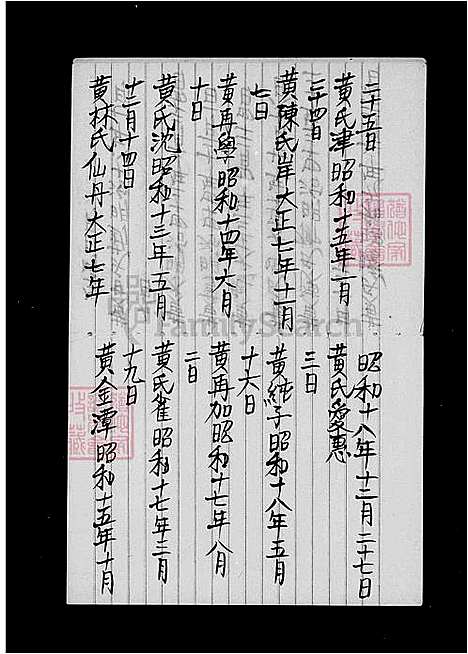 二十五日
黄氏津昭和十五年一月
二十四日
黄陳氏岸大正七年十一月
七日
黄再粤昭和十四年六月
十日
黄氏沈昭和十三年五月
十二月十四日
黄林氏仙丹大正七年
昭和十八年十二月二十七日
黄氏愛惠
三日
黄純子昭和十八年五月
十六日
黄再加昭和十七年八月
二日
黄氏雀昭和十七年三月
十九日
黄金潭昭和十五年十月
FamilySearch